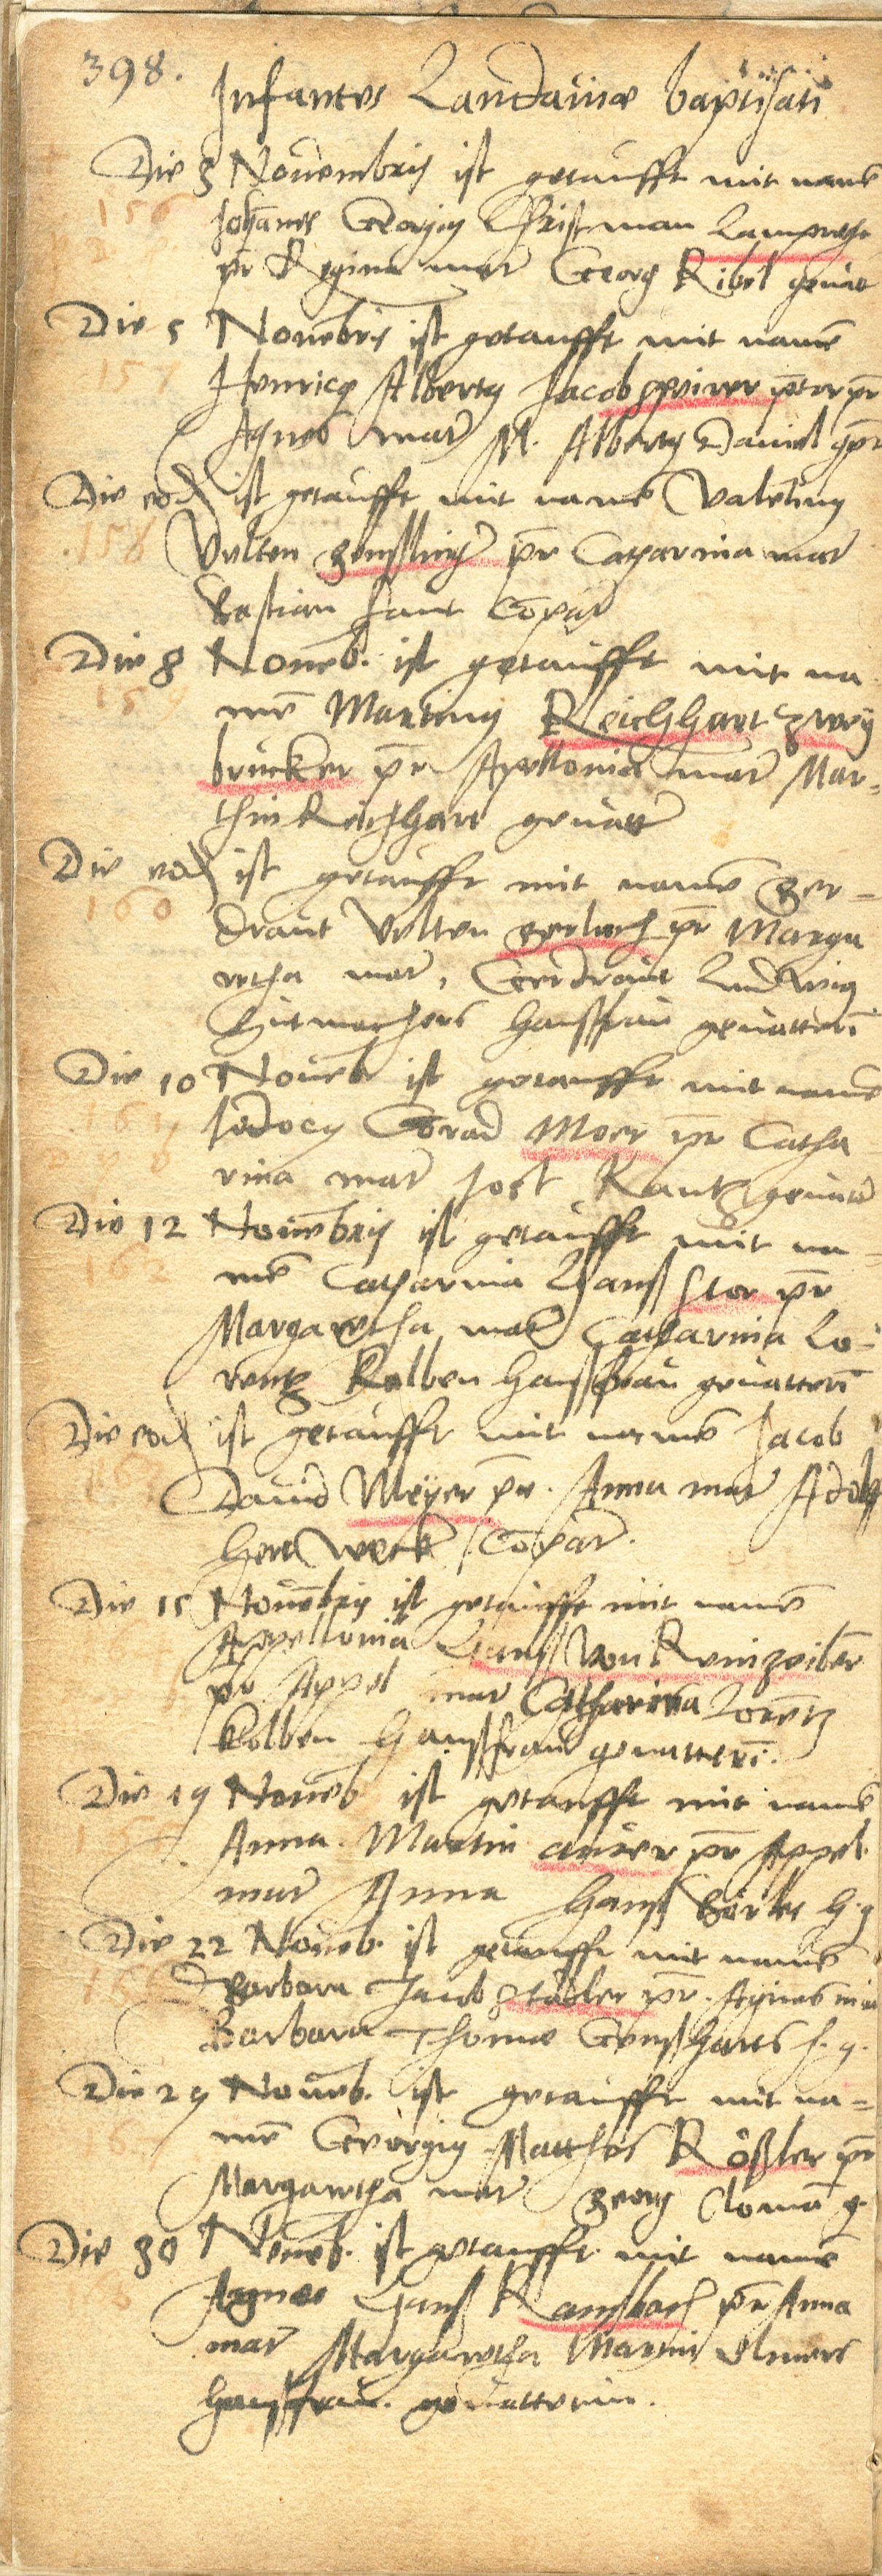 398.
Infantes Landaviæ baptisati
Die 3 Novembris ist getaufft mit namē
156
Johānes Georgiꝯ Christman Lamprecht
pr Regina mar Georg Ribel gevat
Die 5 Novēbris ist getaufft mit namē
157
Henricꝯ Albertꝯ Jacob pr
Agnes mater M. Albertꝯ Daniel
Die eod ist getaufft mit namē Valētinꝯ
158
Velten pr Catharina mater
Bastian Compar
Die 8 Novēb. ist getaufft mit na
159
mē Martinꝯ Reichhart Zwey
brucker pr Apellonia mater Mar=
thin Reichhart gevatter
Die eod ist getaufft mit namē Ger=
160
draut Velten Gerlach pr Marga
retha mar, Gerdraut Ludwig
Hutmachers haussfrau gevatterī
Die 10 Novēb ist getaufft mit namē
161
Jodocꝯ Conrad Moer pr Catha
rina mater Jost Kantz gevatter
Die 12 Novēbris ist getaufft mit na=
162
mē Catharina Hanß Stor pr
Margaretha mater Catharina Lo=
rentz Kolben Haussfrau gevatterī
Die eod ist getaufft mit namē Jacob
David Meÿer pr. Anna mater Adolff
Hertweck Compar.
Die 15 Novēbris ist getaufft mit namē
Appellonia Hanß von
pr Appel mar Catharina Lorētz
Kolben Haussfrau gevatterī.
Die 19 Novēb ist getaufft mit namē
Anna. Martin pr Appel
mar Anna Hanß h. g
Die 22 Novēb. ist getaufft mit namē
Barbara Jacob Stadler pr. Agnes mar
Barbara Thome h. g.
Die 29 Novēb. ist getaufft mit na=
mē Georgiꝯ Matthes Rößler pr
Margaretha mater Georg g
Die 30 Novēb. ist getaufft mit namē
Agnes Hanß Ransbach pr Anna
mar Margaretha Martin Ulmers
haussfrau. gevatterin.